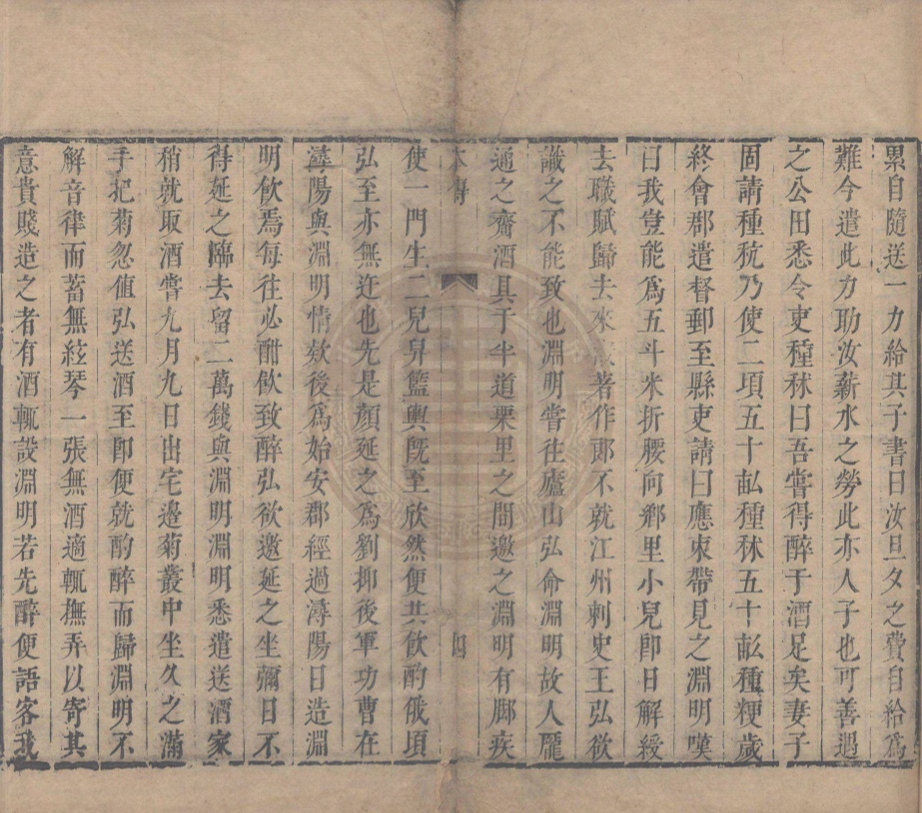 累自隨送一力給其子書曰汝旦夕之費自給爲
難今遣此力助汝薪水之勞此亦人子也可善遇
之公田悉令吏種秫曰吾嘗得醉于酒足矣妻子
固請種秔乃使二頃五十畝種秫五十畝種粳歲
終會郡遣督郵至縣吏請曰應束帶見之淵明嘆
曰我豈能爲五斗米折腰向鄉里小兒卽日解綬
去職賦歸去來著作郎不就江州刺史王弘欲
識之不能致也淵明嘗往廬山弘命淵明故人龐
通之齎酒具于半道栗里之間邀之淵明有脚疾
本傳 四
使一門生二兒舁籃輿旣至欣然便共飲酌俄頃
弘至亦無迕也先是顏延之爲劉抑後軍功曹在
潯陽與淵明情欵後爲始安郡經過潯陽日造淵
明飲焉每往必酣飲致醉弘欲邀延之坐彌日不
得延之臨去留二萬錢與淵明淵明悉遣送酒家
稍就取酒嘗九月九日出宅邊菊叢中坐久之滿
手把菊忽值弘送酒至卽便就酌醉而歸淵明不
解音律而蓄無絃琴一張無酒適輒撫弄以寄其
意貴賤造之者有酒輒設淵明若先醉便語客我